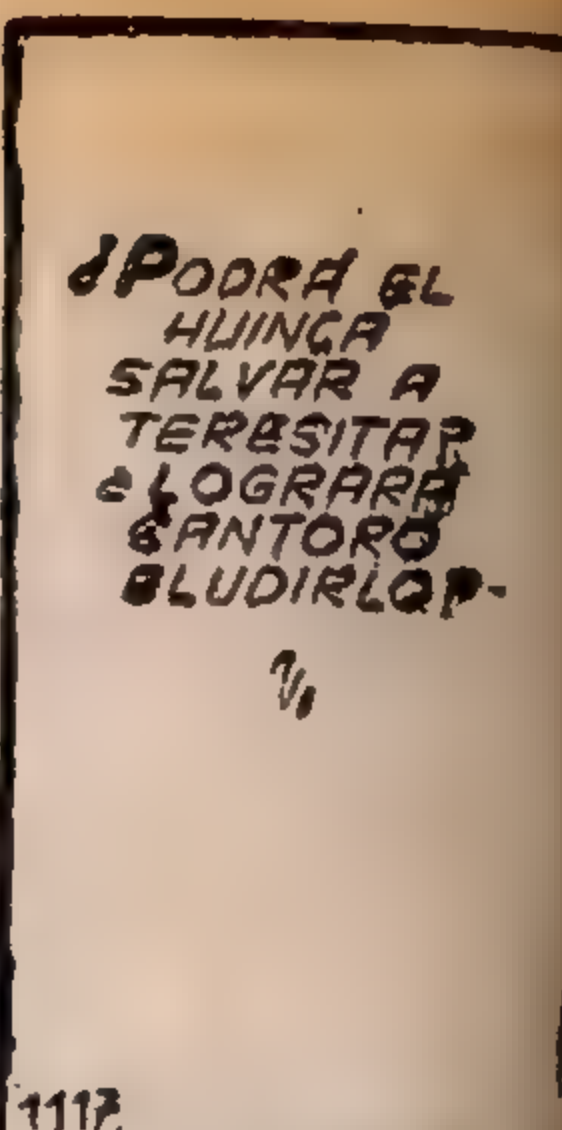 ¿PODRÁ EL
HUINCA
SALVAR A
TERESITA?
¿LOGRARÁ
CANTORO
ELUDIRLO?-
1112